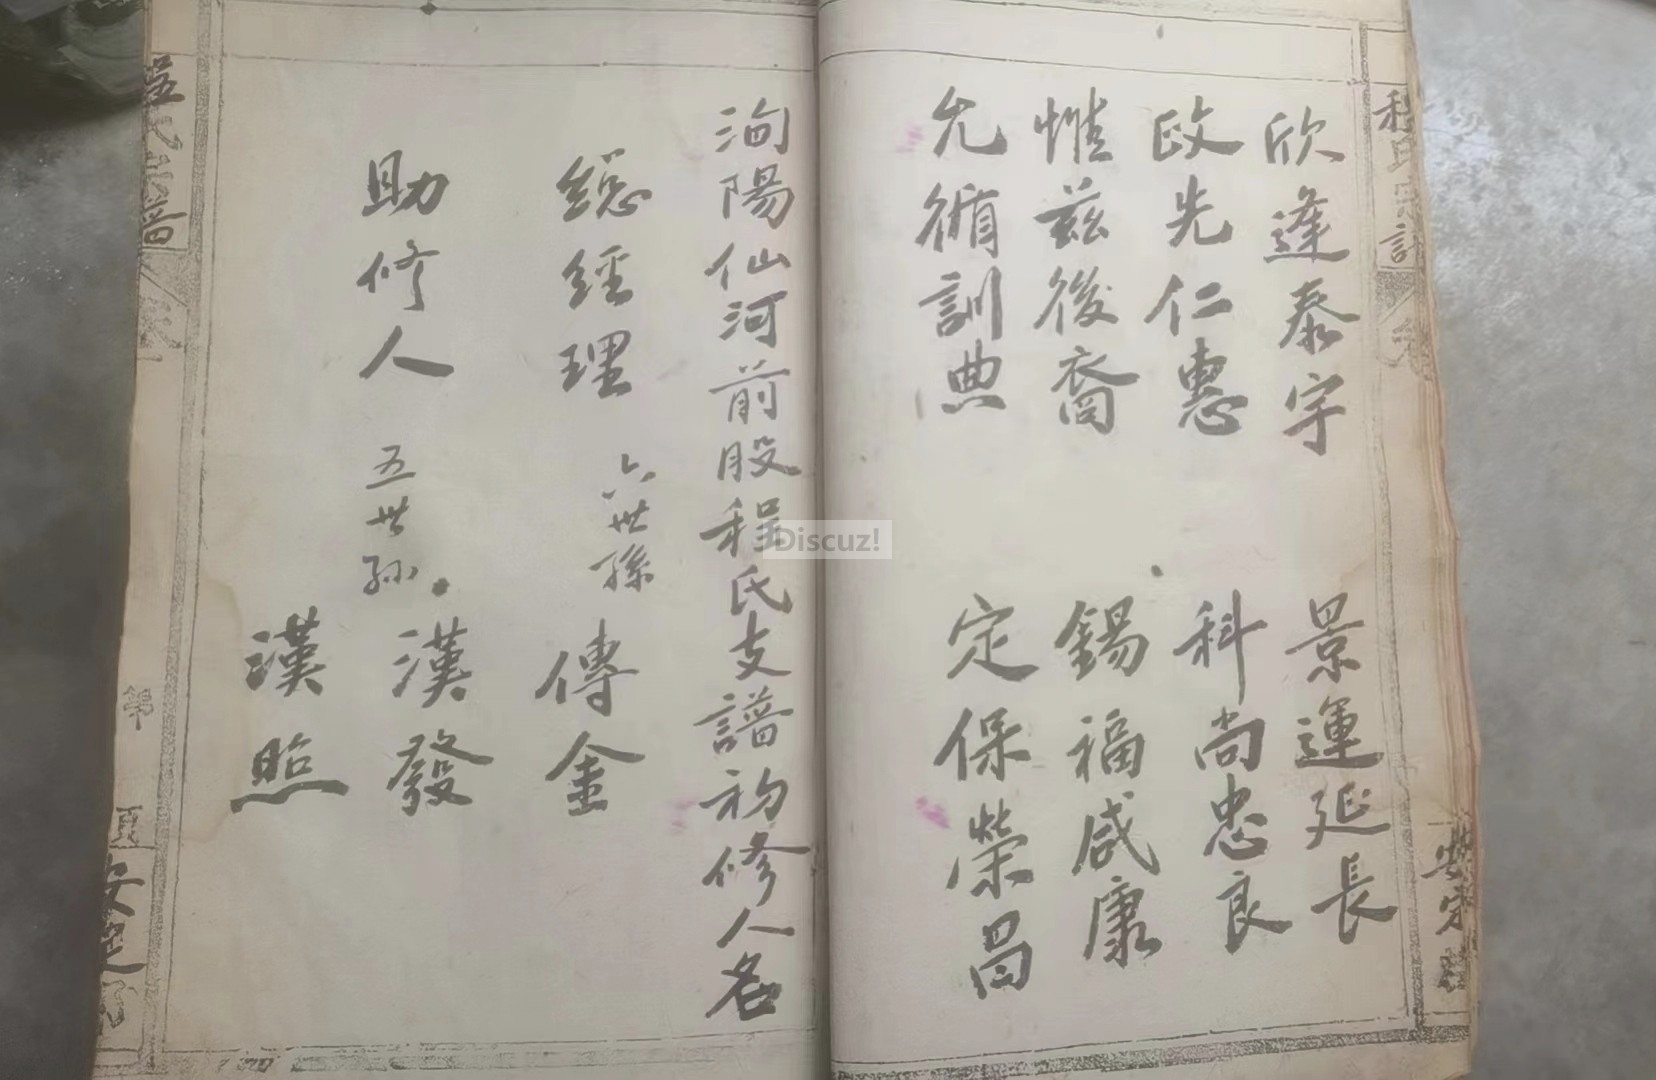 欣逢泰宇 景運延長
啟先仁惠 科尚忠良
惟兹後裔 錫福咸康
允循訓典 定保榮昌
洵陽仙河前股程氏支譜初修人名
總經理 六世孫 傳金
助修人 五世孙 漢發
漢照
程氏宗譜
Discuz!